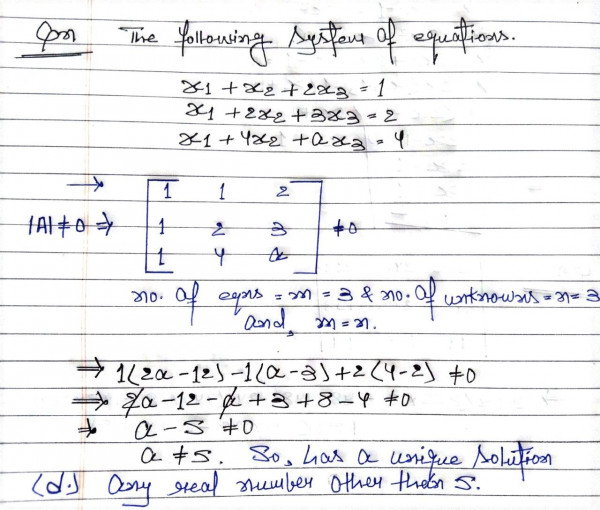 Qn The following system of equations.
x1 + x2 + 2x3 = 1
x1 + 2x2 + 3x3 = 2
x1 + 4x2 + ax3 = 4
→ 1 1 2
|A| ≠ 0 ⇒ 1 2 3 ≠ 0
1 4 a
no. of eqns = m = 3 & no. of unknowns = n = 3
and, m = n.
⇒ 1(2a - 12) - 1(a - 3) + 2(4 - 2) ≠ 0
⇒ 2a - 12 - a + 3 + 8 - 4 ≠ 0
⇒ a - 5 ≠ 0
a ≠ 5. So, has a unique solution
(d.) any real number other than 5.